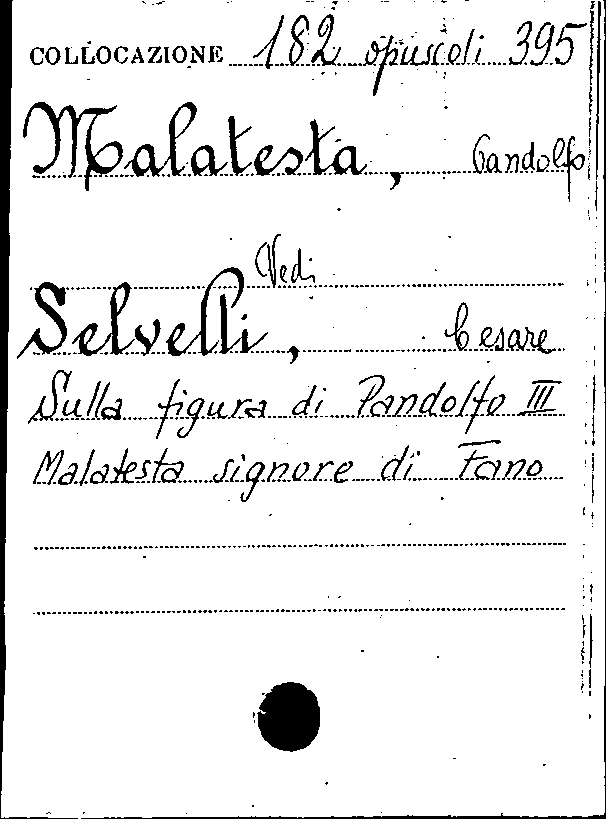 COLLOCAZIONE 182 opuscoli 395
Malatesta, Pandolfo
Vedi
Selvelli, Cesare
Sulla figura di Pandolfo III
Malatesta signore di Fano